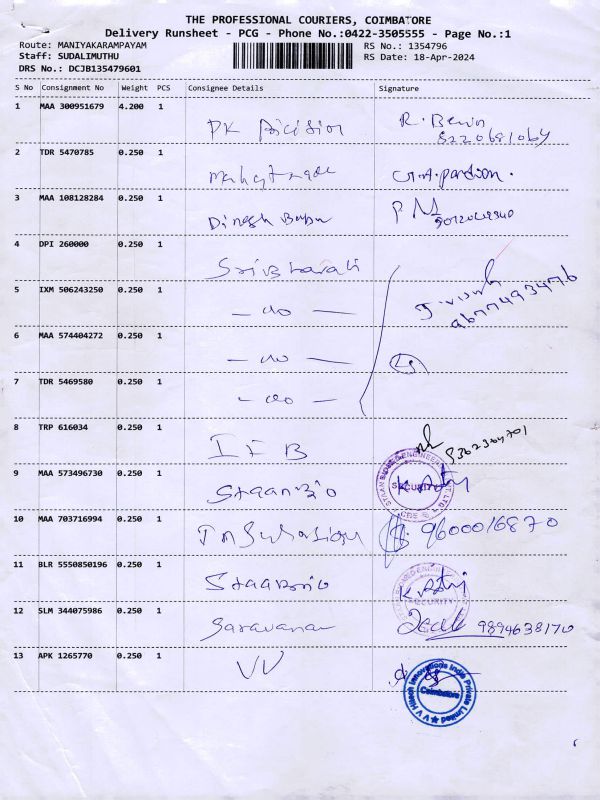 THE PROFESSIONAL COURIERS, COIMBATORE
Delivery Runsheet - PCG - Phone No.:0422-3505555 - Page No.:1
Route: MANIYAKARAMPAYAM RS No.: 1354796
Staff: SUDALIMUTHU RS Date: 18-Apr-2024
DRS No.: DCJB135479601
S No Consignment No Weight PCS Consignee Details Signature
1 MAA 300951679 4.200 1 R. Benin
8220681064
2 TDR 5470785 0.250 1
3 MAA 108128284 0.250 1 Dinesh Babu
4 DPI 260000 0.250 1 Sri Bharati
5 IXM 506243250 0.250 1 - do -
9677493476
6 MAA 574404272 0.250 1 - do -
7 TDR 5469580 0.250 1 - do -
8 TRP 616034 0.250 1 I F B
9 MAA 573496730 0.250 1 Staanbio SECURITY
10 MAA 703716994 0.250 1 9600016870
11 BLR 5550850196 0.250 1 Staanbio SECURITY
12 SLM 344075986 0.250 1 Saravanan 9894638170
13 APK 1265770 0.250 1 VV
V V Hitech Innovations India Private Limited
Coimbatore